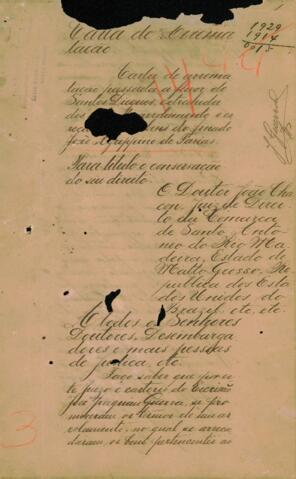 Carta de Arrema
tação
1929
1914
0015
Carta de arrema
tação passada a favor de
Santos Diques, extrahida
dos
João Agrippino de Farias.
Para titulo e conservação
do seu direito.
O Doutor João Cha
con, Juiz de Direi
to da Comarca
de Santo Anto
nio do Rio Ma
deira, Estado de
Matto Grosso, Re
publica dos Esta
dos Unidos do
Brazil etc. etc.
A todos os Senhores
Doutores, Desembarga
dores e mais pessoas
de justiça, etc.
Faço saber que por es
te juizo e cartorio do Escrivão
se pro
moveram os termos de um ar
rolamento, no qual se arreca
daram os bens pertencentes ao
3